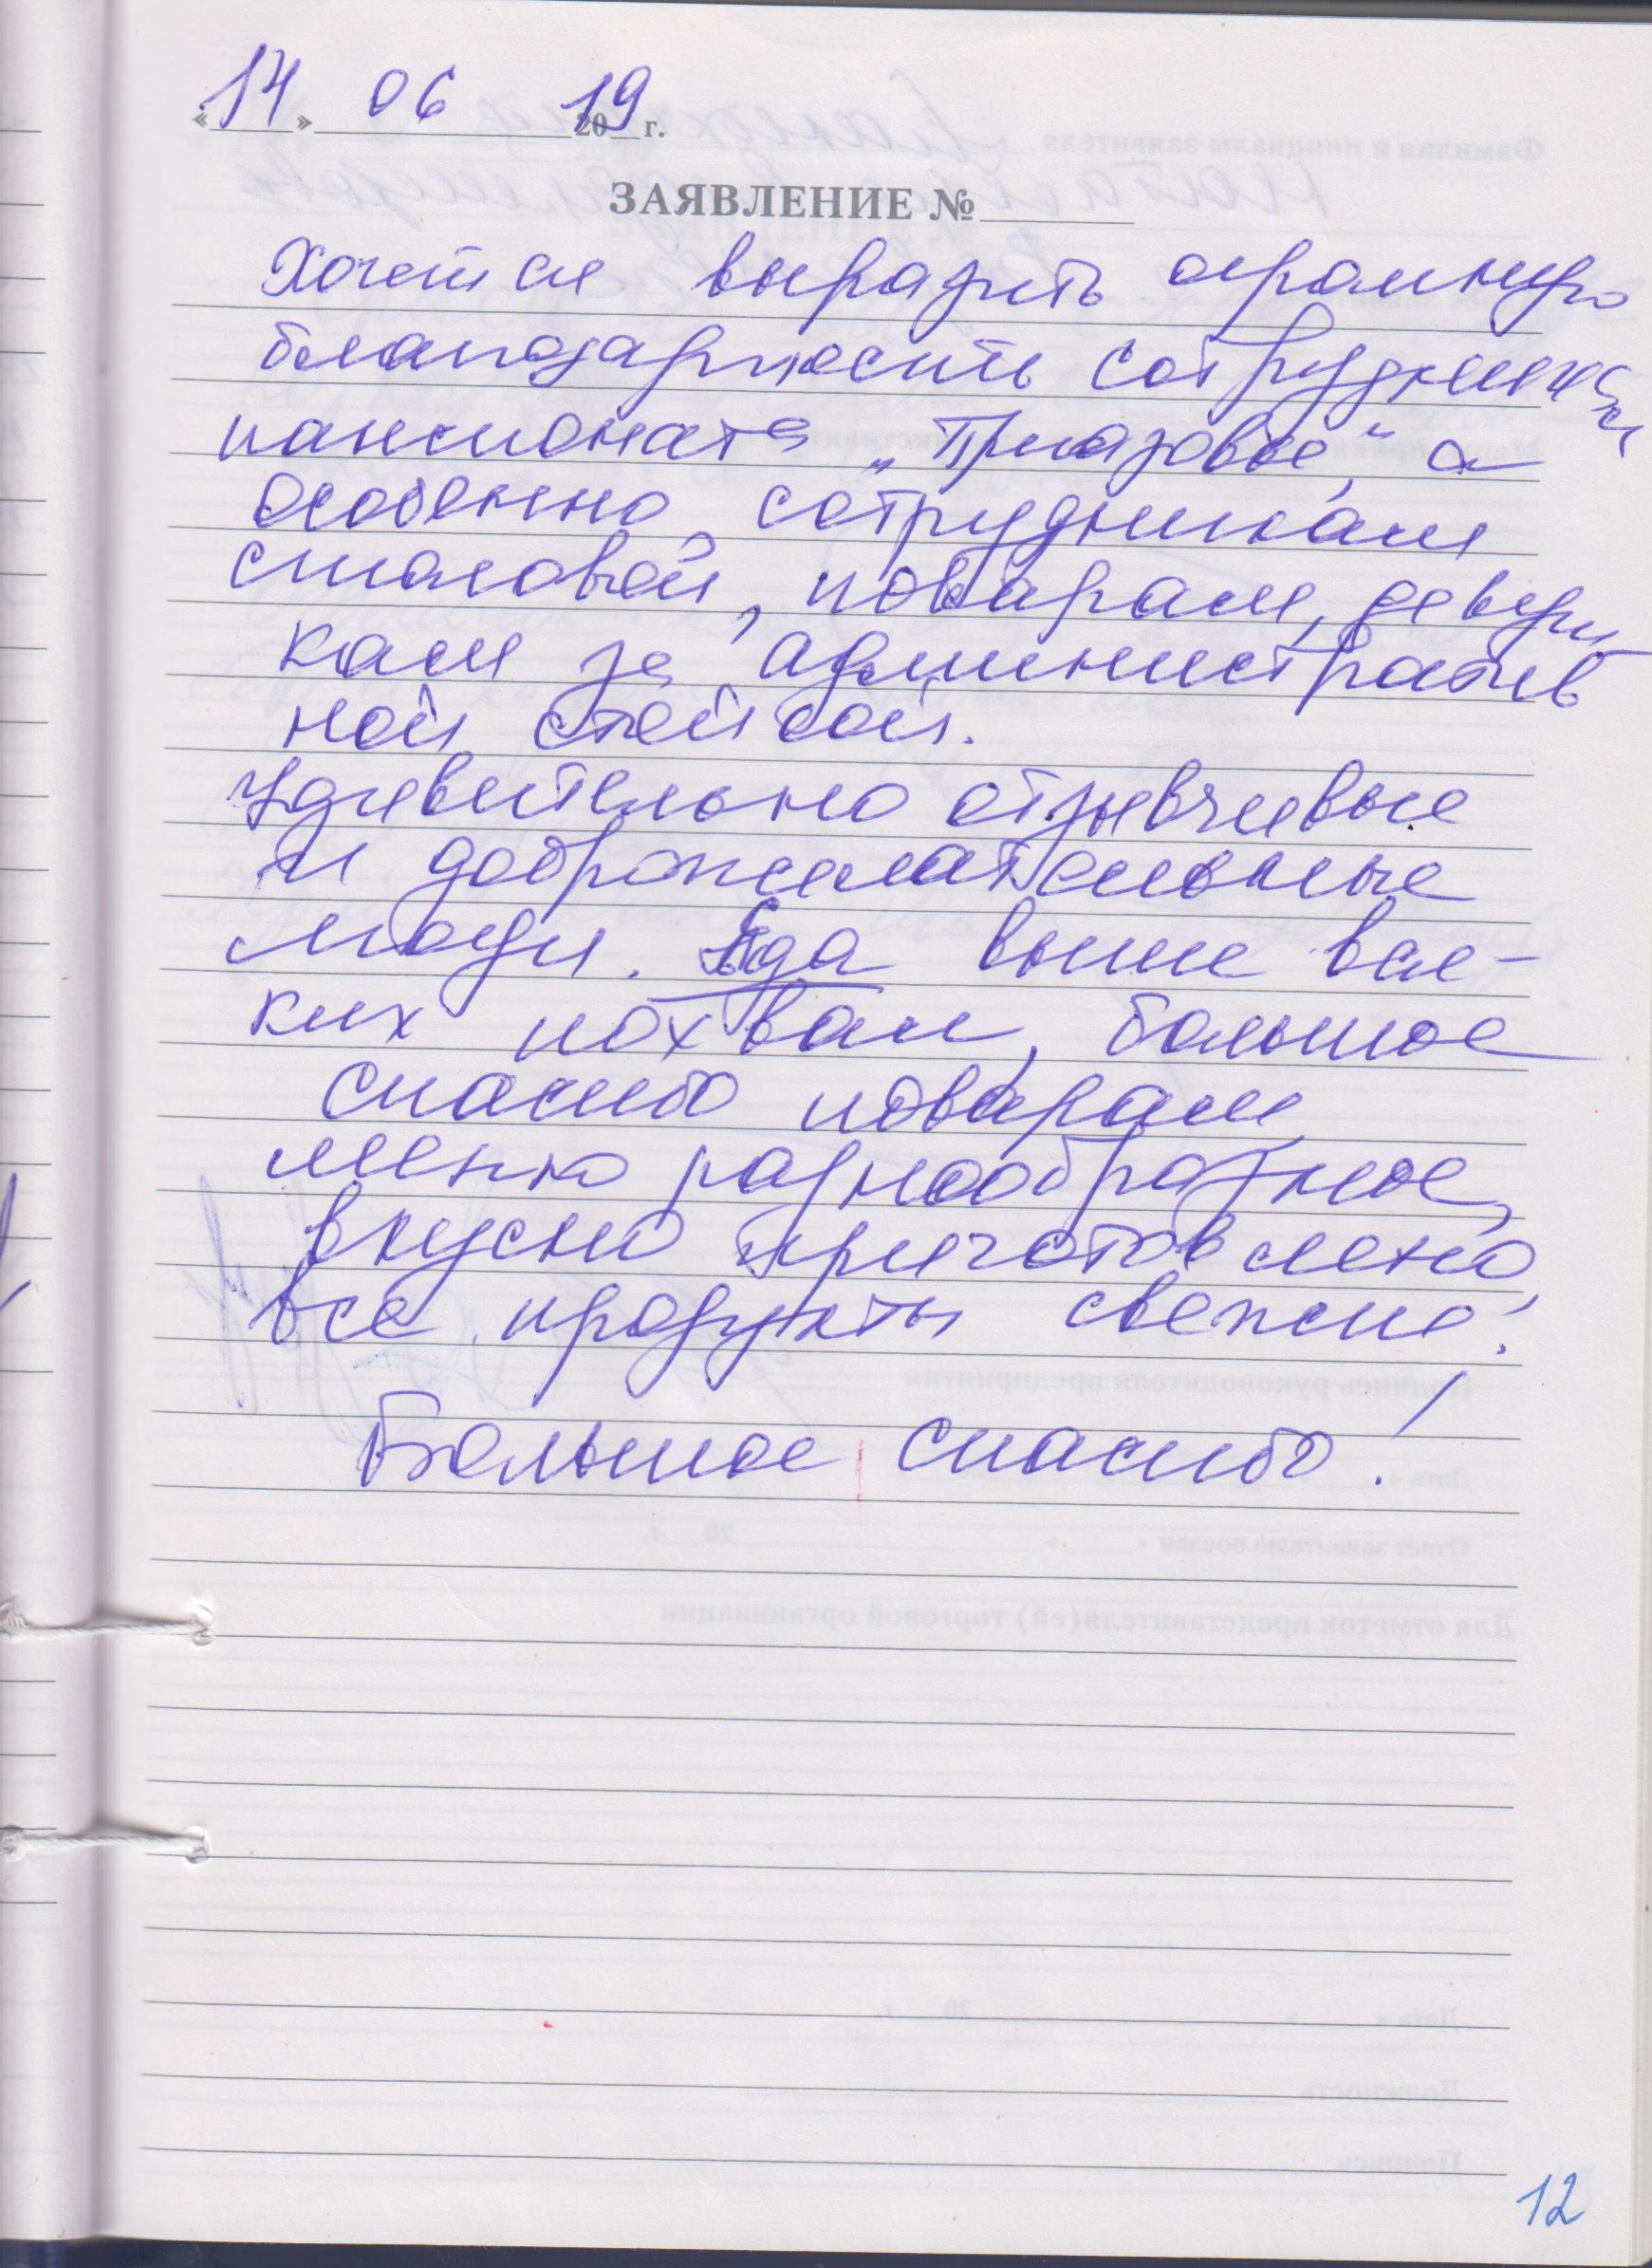 «14» 06 2019 г.
ЗАЯВЛЕНИЕ №
Хочется выразить огромную
благодарность сотрудникам
пансионата „Приазовье“, а
особенно, сотрудникам
столовой, поварам, девуш
кам за административ
ной стойкой.
Удивительно отзывчивые
и доброжелательные
люди. Еда выше вся-
ких похвал, большое
спасибо поварам,
меню разнообразное,
вкусно приготовлено,
все продукты свежие!
Большое спасибо!
12